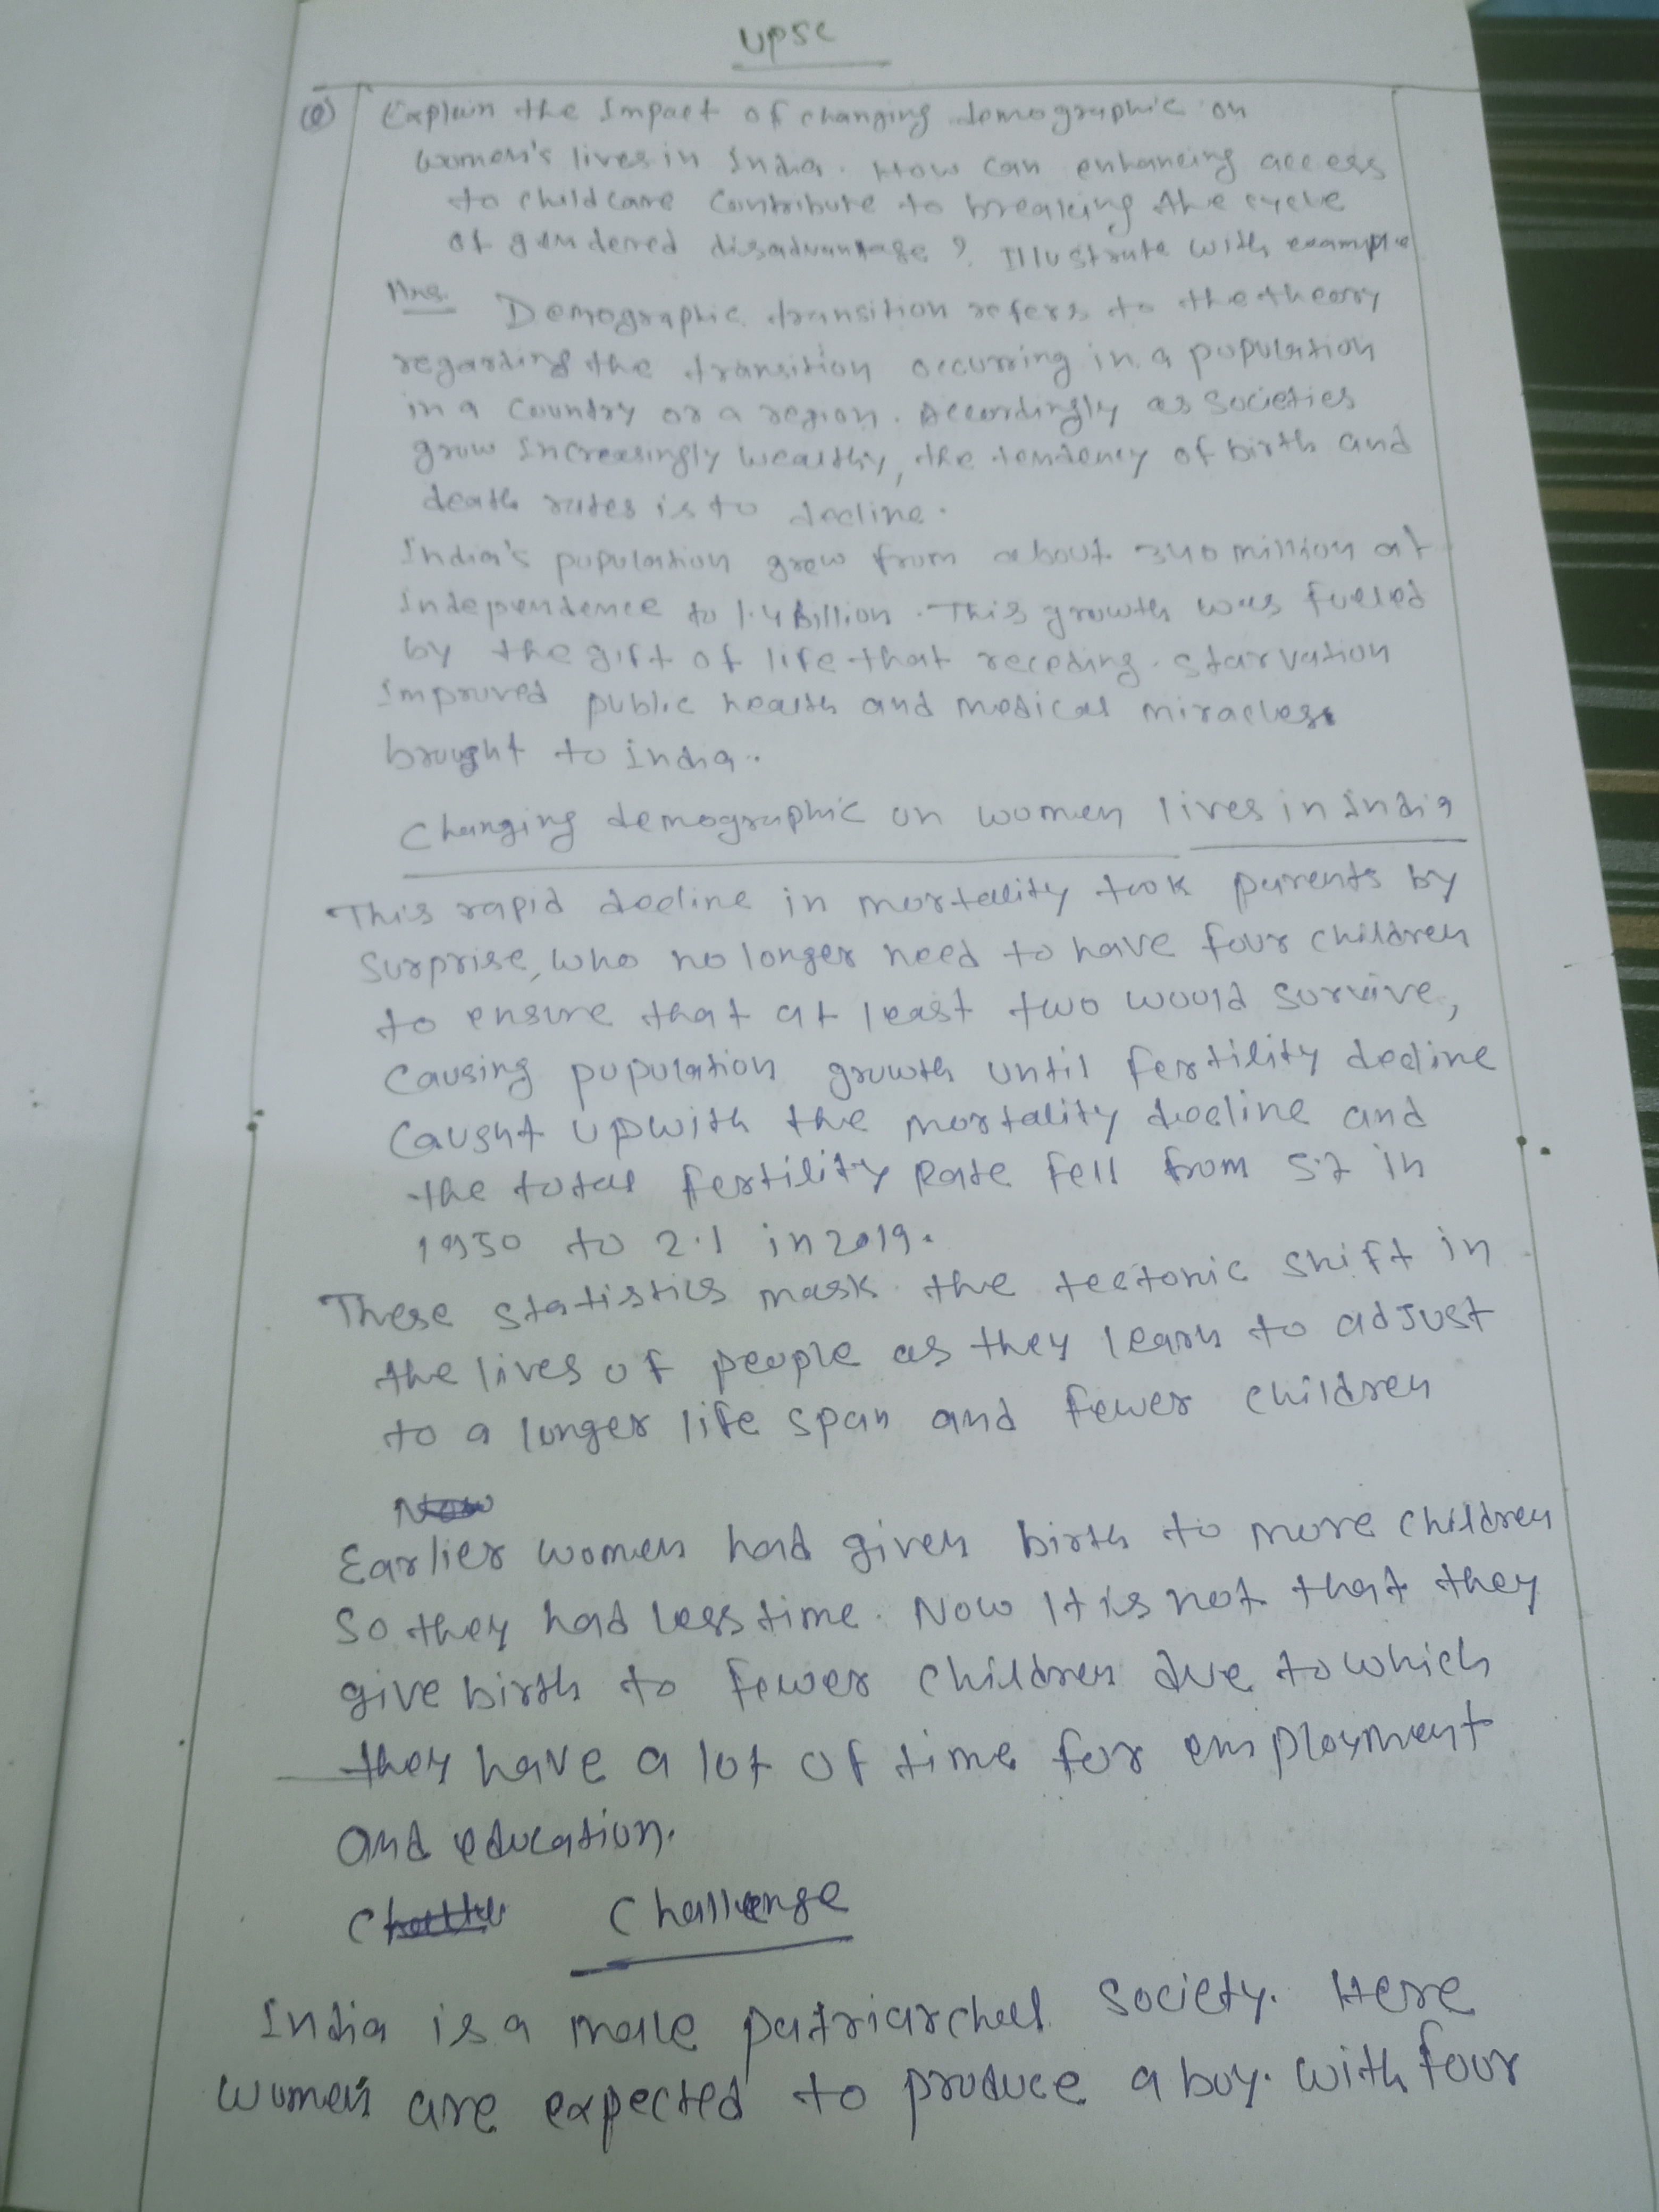 UPSC
(Q) Explain the Impact of changing demographic on
women's lives in India. How can enhancing access
to childcare contribute to breaking the cycle
of gendered disadvantage ? Illustrate with example
Ans. Demographic transition refers to the theory
regarding the transition occurring in a population
in a country or a region. Accordingly as societies
grow increasingly wealthy, the tendency of birth and
death rates is to decline.
India's population grew from about 340 million at
Independence to 1.4 Billion. This growth was fueled
by the gift of life that receding starvation
Improved public health and medical miracles
brought to india.
Changing demographic on women lives in India
This rapid decline in mortality took parents by
surprise, who no longer need to have four children
to ensure that at least two would survive,
causing population growth until fertility decline
caught up with the mortality decline and
the total fertility Rate fell from 5.7 in
1950 to 2.1 in 2019.
These statistics mask the tectonic shift in
the lives of people as they learn to adjust
to a longer life span and fewer children
Now
Earlier women had given birth to more children
So they had less time. Now It is not that they
give birth to fewer children due to which
they have a lot of time for employment
and education.
Challenge
India is a male patriarchal society. Here
women are expected to produce a boy. with four